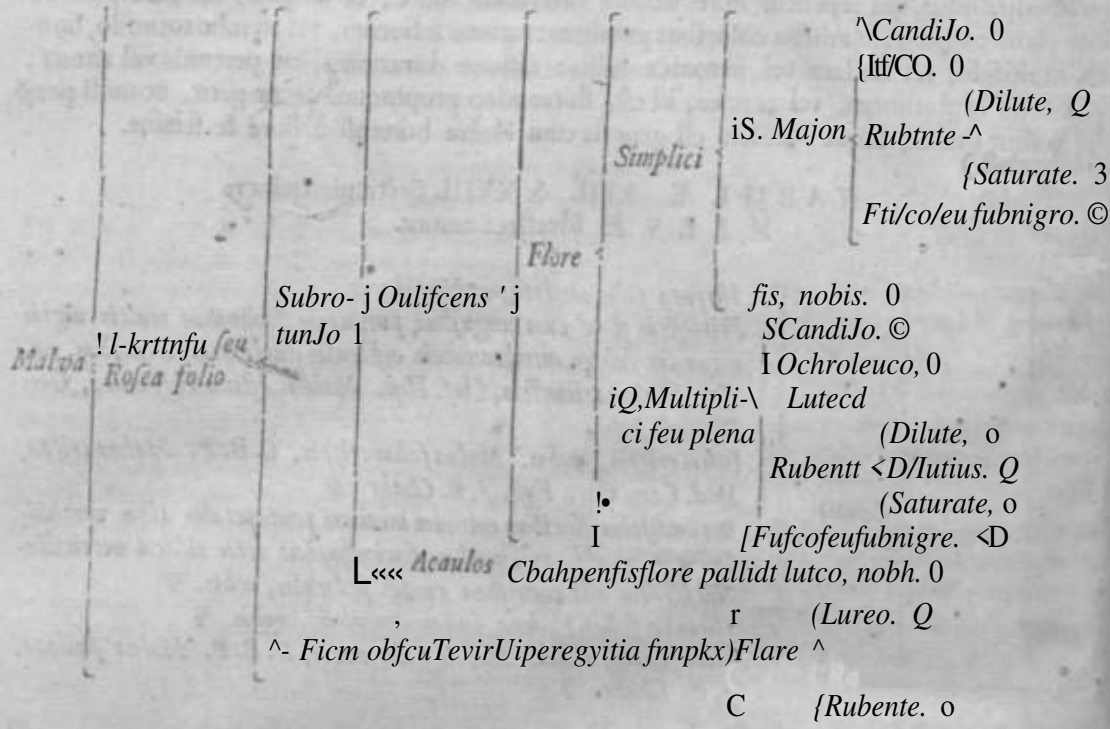 '\CandiJo. 0
{Itf/CO. 0
(Dilute, Q
iS. Majon
Rubtnte -^
Simplici
{Saturate. 3
Fti/co/eu fubnigro. ©
Flore
Subro- j Oulifcens ' j
fis, nobis. 0
tunJo 1
SCandiJo. ©
Malva ! l-krttnfu feu
Rofea folio
I Ochroleuco, 0
iQ,Multipli-\ Lutecd
ci feu plena
(Dilute, o
Rubentt <D/Iutius. Q
!•
(Saturate, o
I
[Fufcofeufubnigre. <D
L«« Acaulos Cbahpenfisflore pallidt lutco, nobh. 0
,
r
(Lureo. Q
^- Ficm obfcuTevirUiperegyitia fnnpkx)Flare ^
C
{Rubente. o